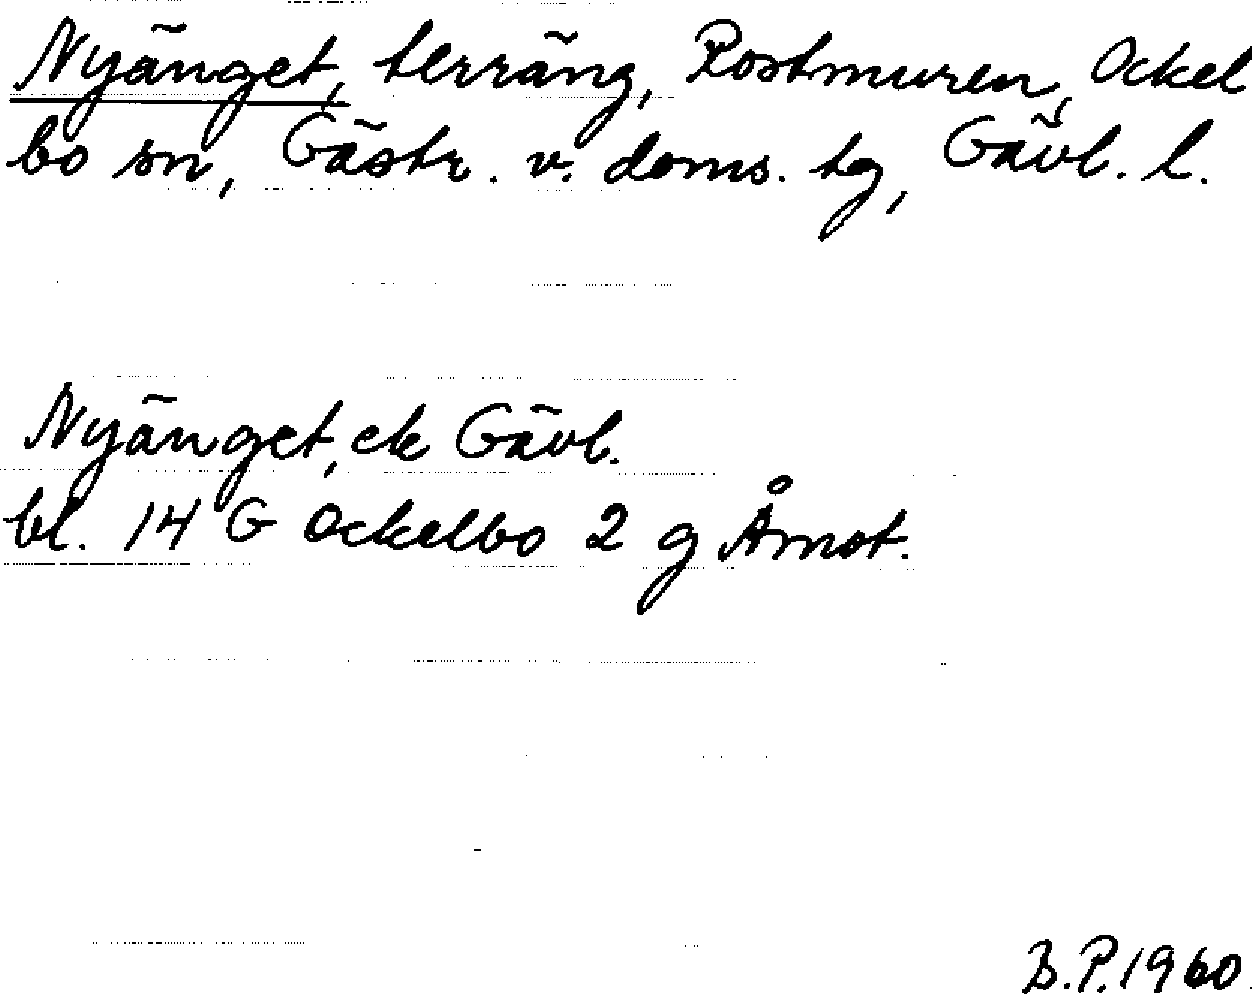 Nyänget, terräng, Rostmuren, Ockel
bo sn, Gästr. v. doms. tg, Gävl. l.
Nyänget, ek Gävl.
bl. 14 G Ockelbo 2 g Åmot.
B.P. 1960